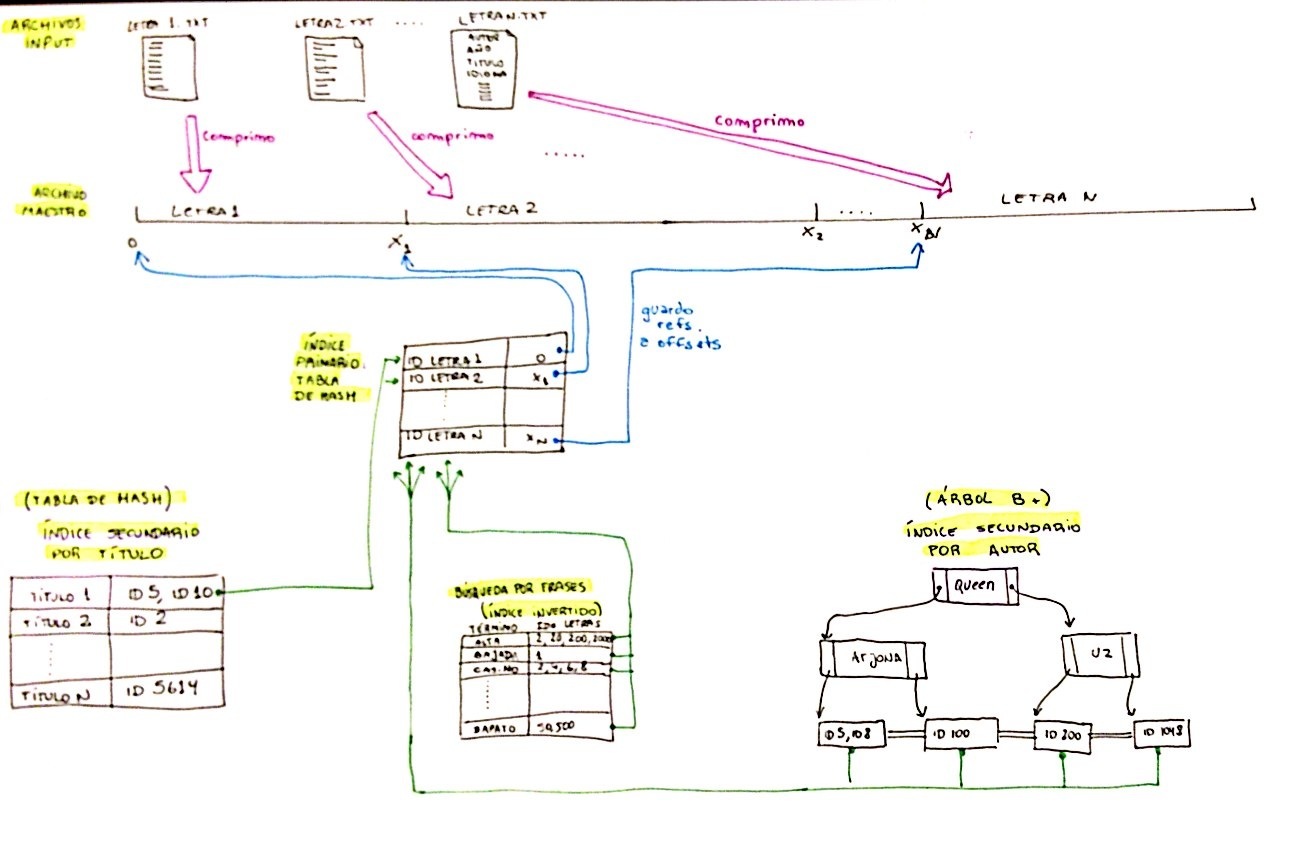 ARCHIVOS
INPUT
LETRA 1.TXT
LETRA2.TXT
.....
LETRAN.TXT
AUTOR
AÑO
TITULO
IDIOMA
comprimo
comprimo
.....
comprimo
ARCHIVO
MAESTRO
LETRA1
LETRA 2
....
LETRA N
0
X1
X2
XN
guardo
refs.
a offsets
ÍNDICE
PRIMARIO:
TABLA
DE HASH
ID LETRA1 0
ID LETRA 2 X1
ID LETRA N XN
(TABLA DE HASH)
ÍNDICE SECUNDARIO
POR TÍTULO
TÍTULO 1 ID 5, ID 10
TÍTULO 2 ID 2
TÍTULO N ID 5614
BÚSQUEDA POR FRASES
(ÍNDICE INVERTIDO)
TÉRMINO IDs LETRAS
ALTA 2, 20, 200, 2000
BAJADA 1
CAMINO 2, 4, 6, 8
50, 500
(ÁRBOL B+)
ÍNDICE SECUNDARIO
POR AUTOR
Queen
ArJONA
U2
ID 100
ID 200
ID 1048